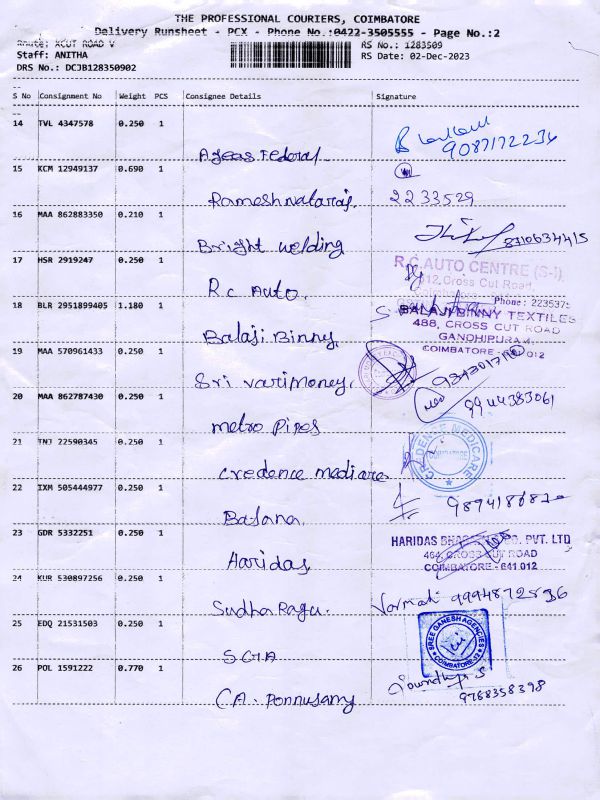 THE PROFESSIONAL COURIERS, COIMBATORE
Delivery Runsheet - PCX - Phone No.:0422-3505555 - Page No.:2
Route: XCUT ROAD V RS No.: 1283509
Staff: ANITHA RS Date: 02-Dec-2023
DRS No.: DCJB128350902
S No Consignment No Weight PCS Consignee Details Signature
14 TVL 4347578 0.250 1
Ageas Federal 9087172236
15 KCM 12949137 0.690 1
Rameshnataraj. 2233529
16 MAA 862883350 0.210 1
Bright welding 8710634415
17 HSR 2919247 0.250 1
R.C. AUTO CENTRE (S-I)
412, Cross Cut Road,
R.c Auto.
Phone: 223537
18 BLR 2951899405 1.180 1
BALAJI BINNY TEXTILES
488, CROSS CUT ROAD
GANDHIPURAM,
COIMBATORE - 012
Balaji Binny.
19 MAA 570961433 0.250 1
Sri varimoney.
20 MAA 862787430 0.250 1
9944383061
metro Pipes
21 TNJ 22590345 0.250 1
CREDENCE MEDICARE
COIMBATORE
credence medicare
22 IXM 505444977 0.250 1
Batana
23 GDR 5332251 0.250 1
HARIDAS CO. PVT. LTD
464, CROSS CUT ROAD
COIMBATORE - 641 012
Haridas
24 KUR 530897256 0.250 1
Sudha Ragu. 9994872536
25 EDQ 21531503 0.250 1
SREE GANESH AGENCIES
COIMBATORE-12
SGA
26 POL 1591222 0.770 1
C.A. Ponnusamy 9768358398